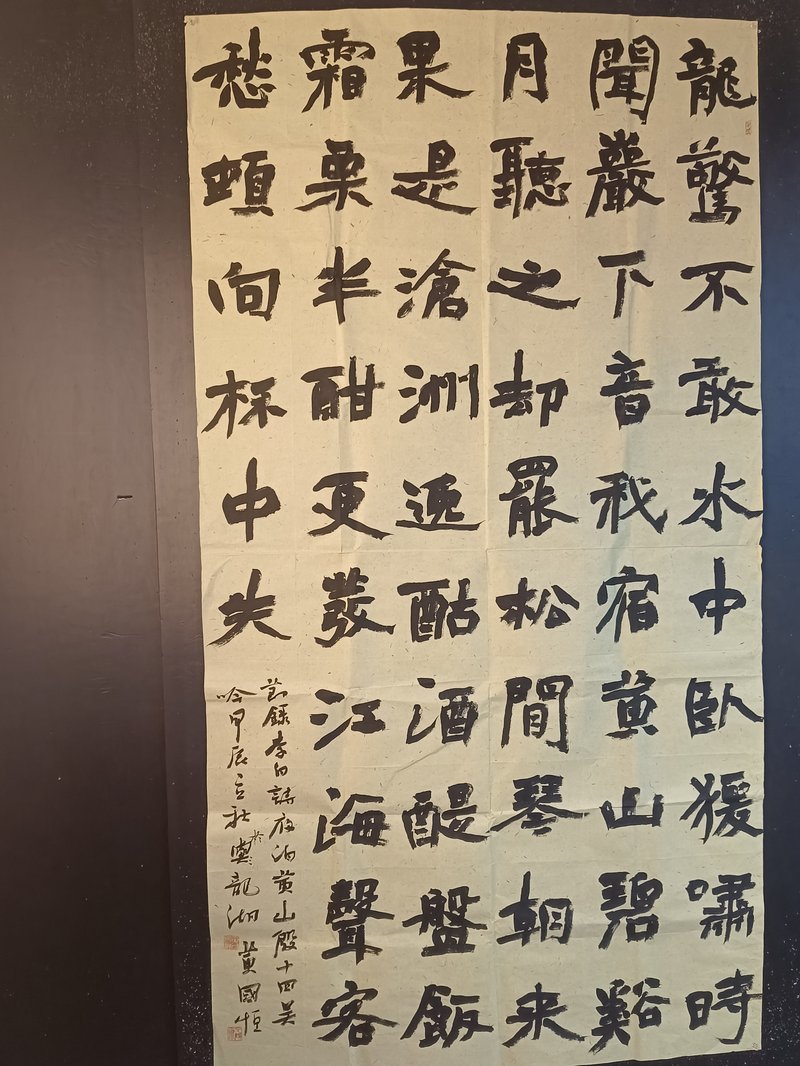 龍驚不敢水中臥猨嘯時
聞巖下音我宿黃山碧谿
月聽之却罷松間琴朝来
果是滄洲逸酤酒醍盤飯
霜栗半酣更發江海聲客
愁頓向杯中失
節錄李白詩夜泊黃山殷十四吴
吟甲辰立秋於奥龍湖黄國恒